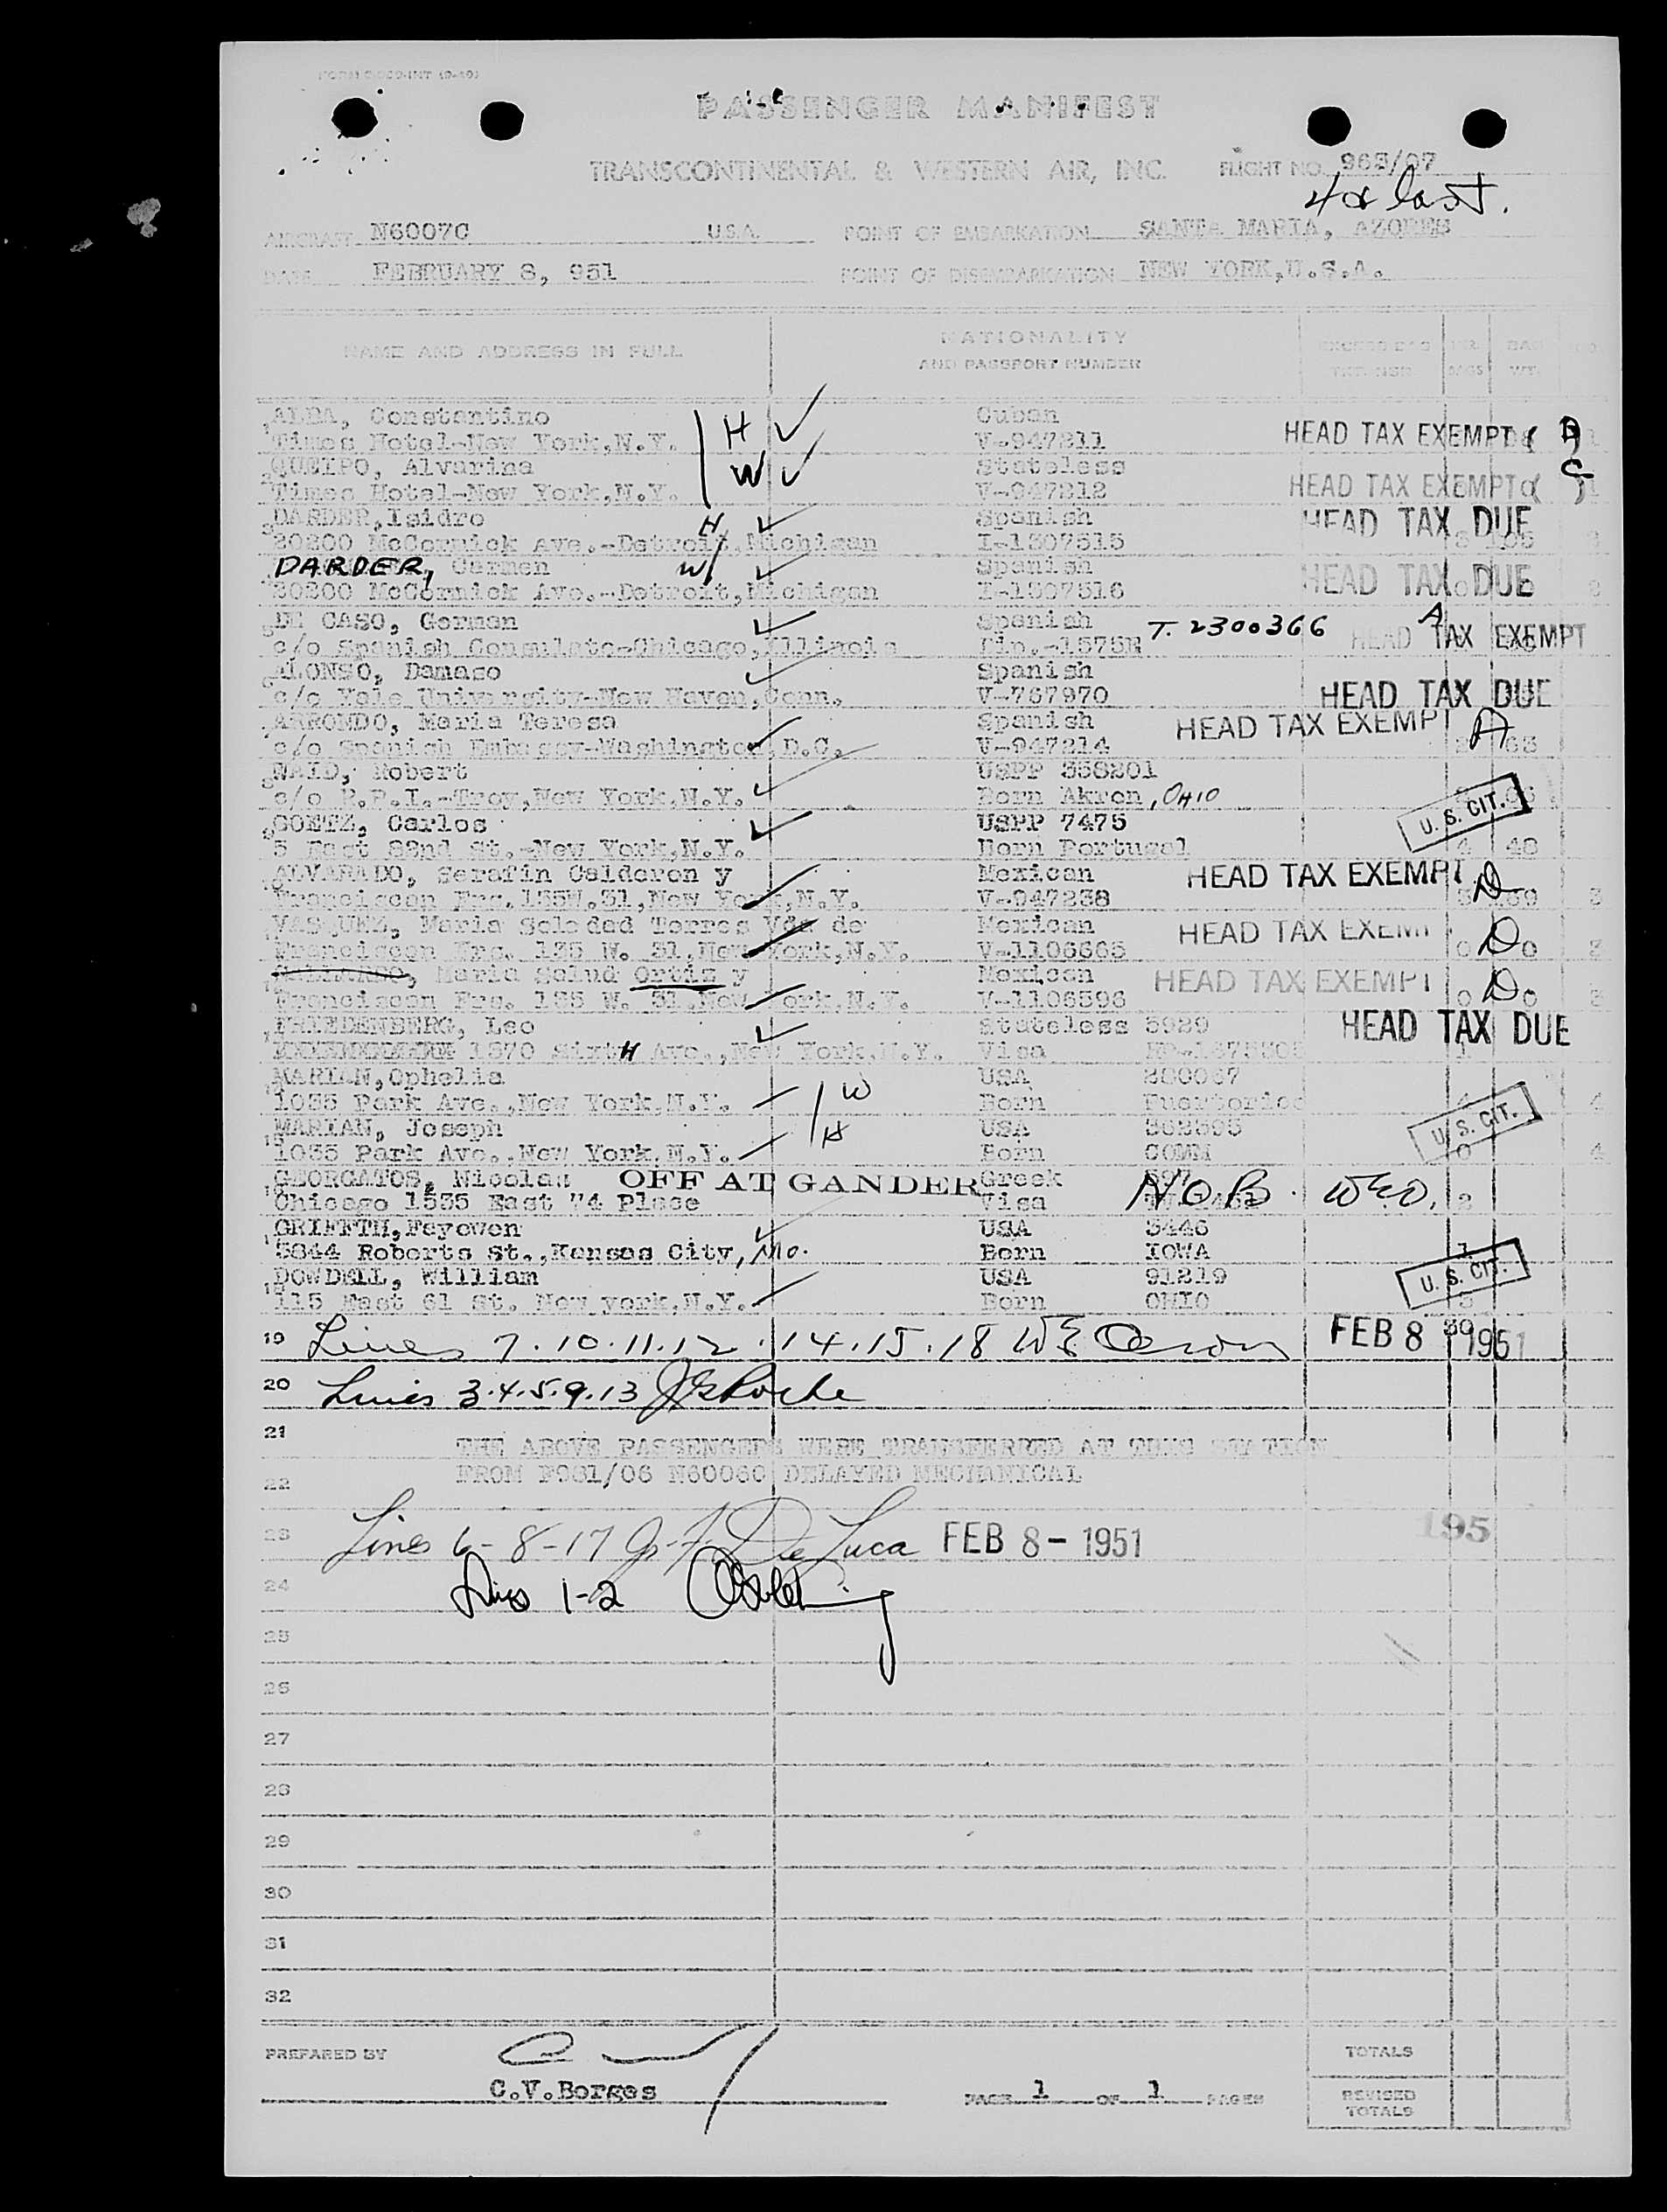 PASSENGER MANIFEST
TRANSCONTINENTAL & WESTERN AIR, INC. FLIGHT NO. 963/07
AIRCRAFT N6007C U.S.A. POINT OF EMBARKATION SANTA MARIA, AZORES
DATE FEBRUARY 8, 951 POINT OF DISEMBARKATION NEW YORK, U.S.A.
NAME AND ADDRESS IN FULL NATIONALITY
AND PASSPORT NUMBER
ALBA, Constantino H Cuban
Times Hotel-New York, N.Y. V-947211 HEAD TAX EXEMPT
QUEIPO, Alvarina W Stateless
Times Hotel-New York, N.Y. V-947212 HEAD TAX EXEMPT
DARDER, Isidro H Spanish HEAD TAX DUE
20200 McCormick Ave.-Detroit, Michigan I-1307515
DARDER, Carmen W Spanish HEAD TAX DUE
20200 McCormick Ave.-Detroit, Michigan I-1307516
DE CASO, German Spanish T. 2300366 HEAD TAX EXEMPT A
c/o Spanish Consulate-Chicago, Illinois
ALONSO, Damaso Spanish
c/o Yale University-New Haven, Conn. V-767970 HEAD TAX DUE
ARRONDO, Maria Teresa Spanish HEAD TAX EXEMPT A
c/o Spanish Embassy-Washington, D.C. V-947214
WAID, Robert USPP 358201
c/o R.P.I.-Troy, New York, N.Y. Born Akron, OHIO U. S. CIT.
GOETZ, Carlos USPP 7475
5 East 82nd St.-New York, N.Y. Born Portugal 4 48
ALVARADO, Serafin Calderon y Mexican HEAD TAX EXEMPT D
Franciscan Frs. 135W.31, New York, N.Y. V-947238
VASQUEZ, Maria Soledad Torres Vda de Mexican HEAD TAX EXEMPT D
Franciscan Frs. 135 W. 31, New York, N.Y. V-1106605
Maria Salud Ortiz y Mexican HEAD TAX EXEMPT D
Franciscan Frs. 135 W. 31, New York, N.Y. V-1106596
FRIEDENBERG, Leo Stateless 5929 HEAD TAX DUE
1370 SixtH Ave., New York, N.Y. Visa
MARIAN, Ophelia W USA 280067
1035 Park Ave., New York, N.Y. Born Puertorico
MARIAN, Joseph H USA 362595 U. S. CIT.
1035 Park Ave., New York, N.Y. Born CONN
GEORGATOS, Nicolas OFF AT GANDER Greek
Chicago 1535 East 74 Place Visa N.O.B. WEO. 2
GRIFFTH, Fayeven USA 3446
5844 Roberts St., Kansas City, Mo. Born IOWA 1
DOWDELL, William USA 91219 U. S. CIT.
115 East 61 St. New york, N.Y. Born OHIO
19 Lines 7.10.11.12.14.15.18 FEB 8 1951
20 Lines 3.4.5.9.13
21 THE ABOVE PASSENGERS WERE TRANSFERRED AT THIS STATION
22 FROM F981/06 N6006C DELAYED MECHANICAL
23 Lines 6-8-17 J. F. De Luca FEB 8 - 1951 195
24 Lines 1-2
25
26
27
28
29
30
31
32
PREPARED BY TOTALS
C.V.Borges PAGE 1 OF 1 PAGES REVISED
TOTALS